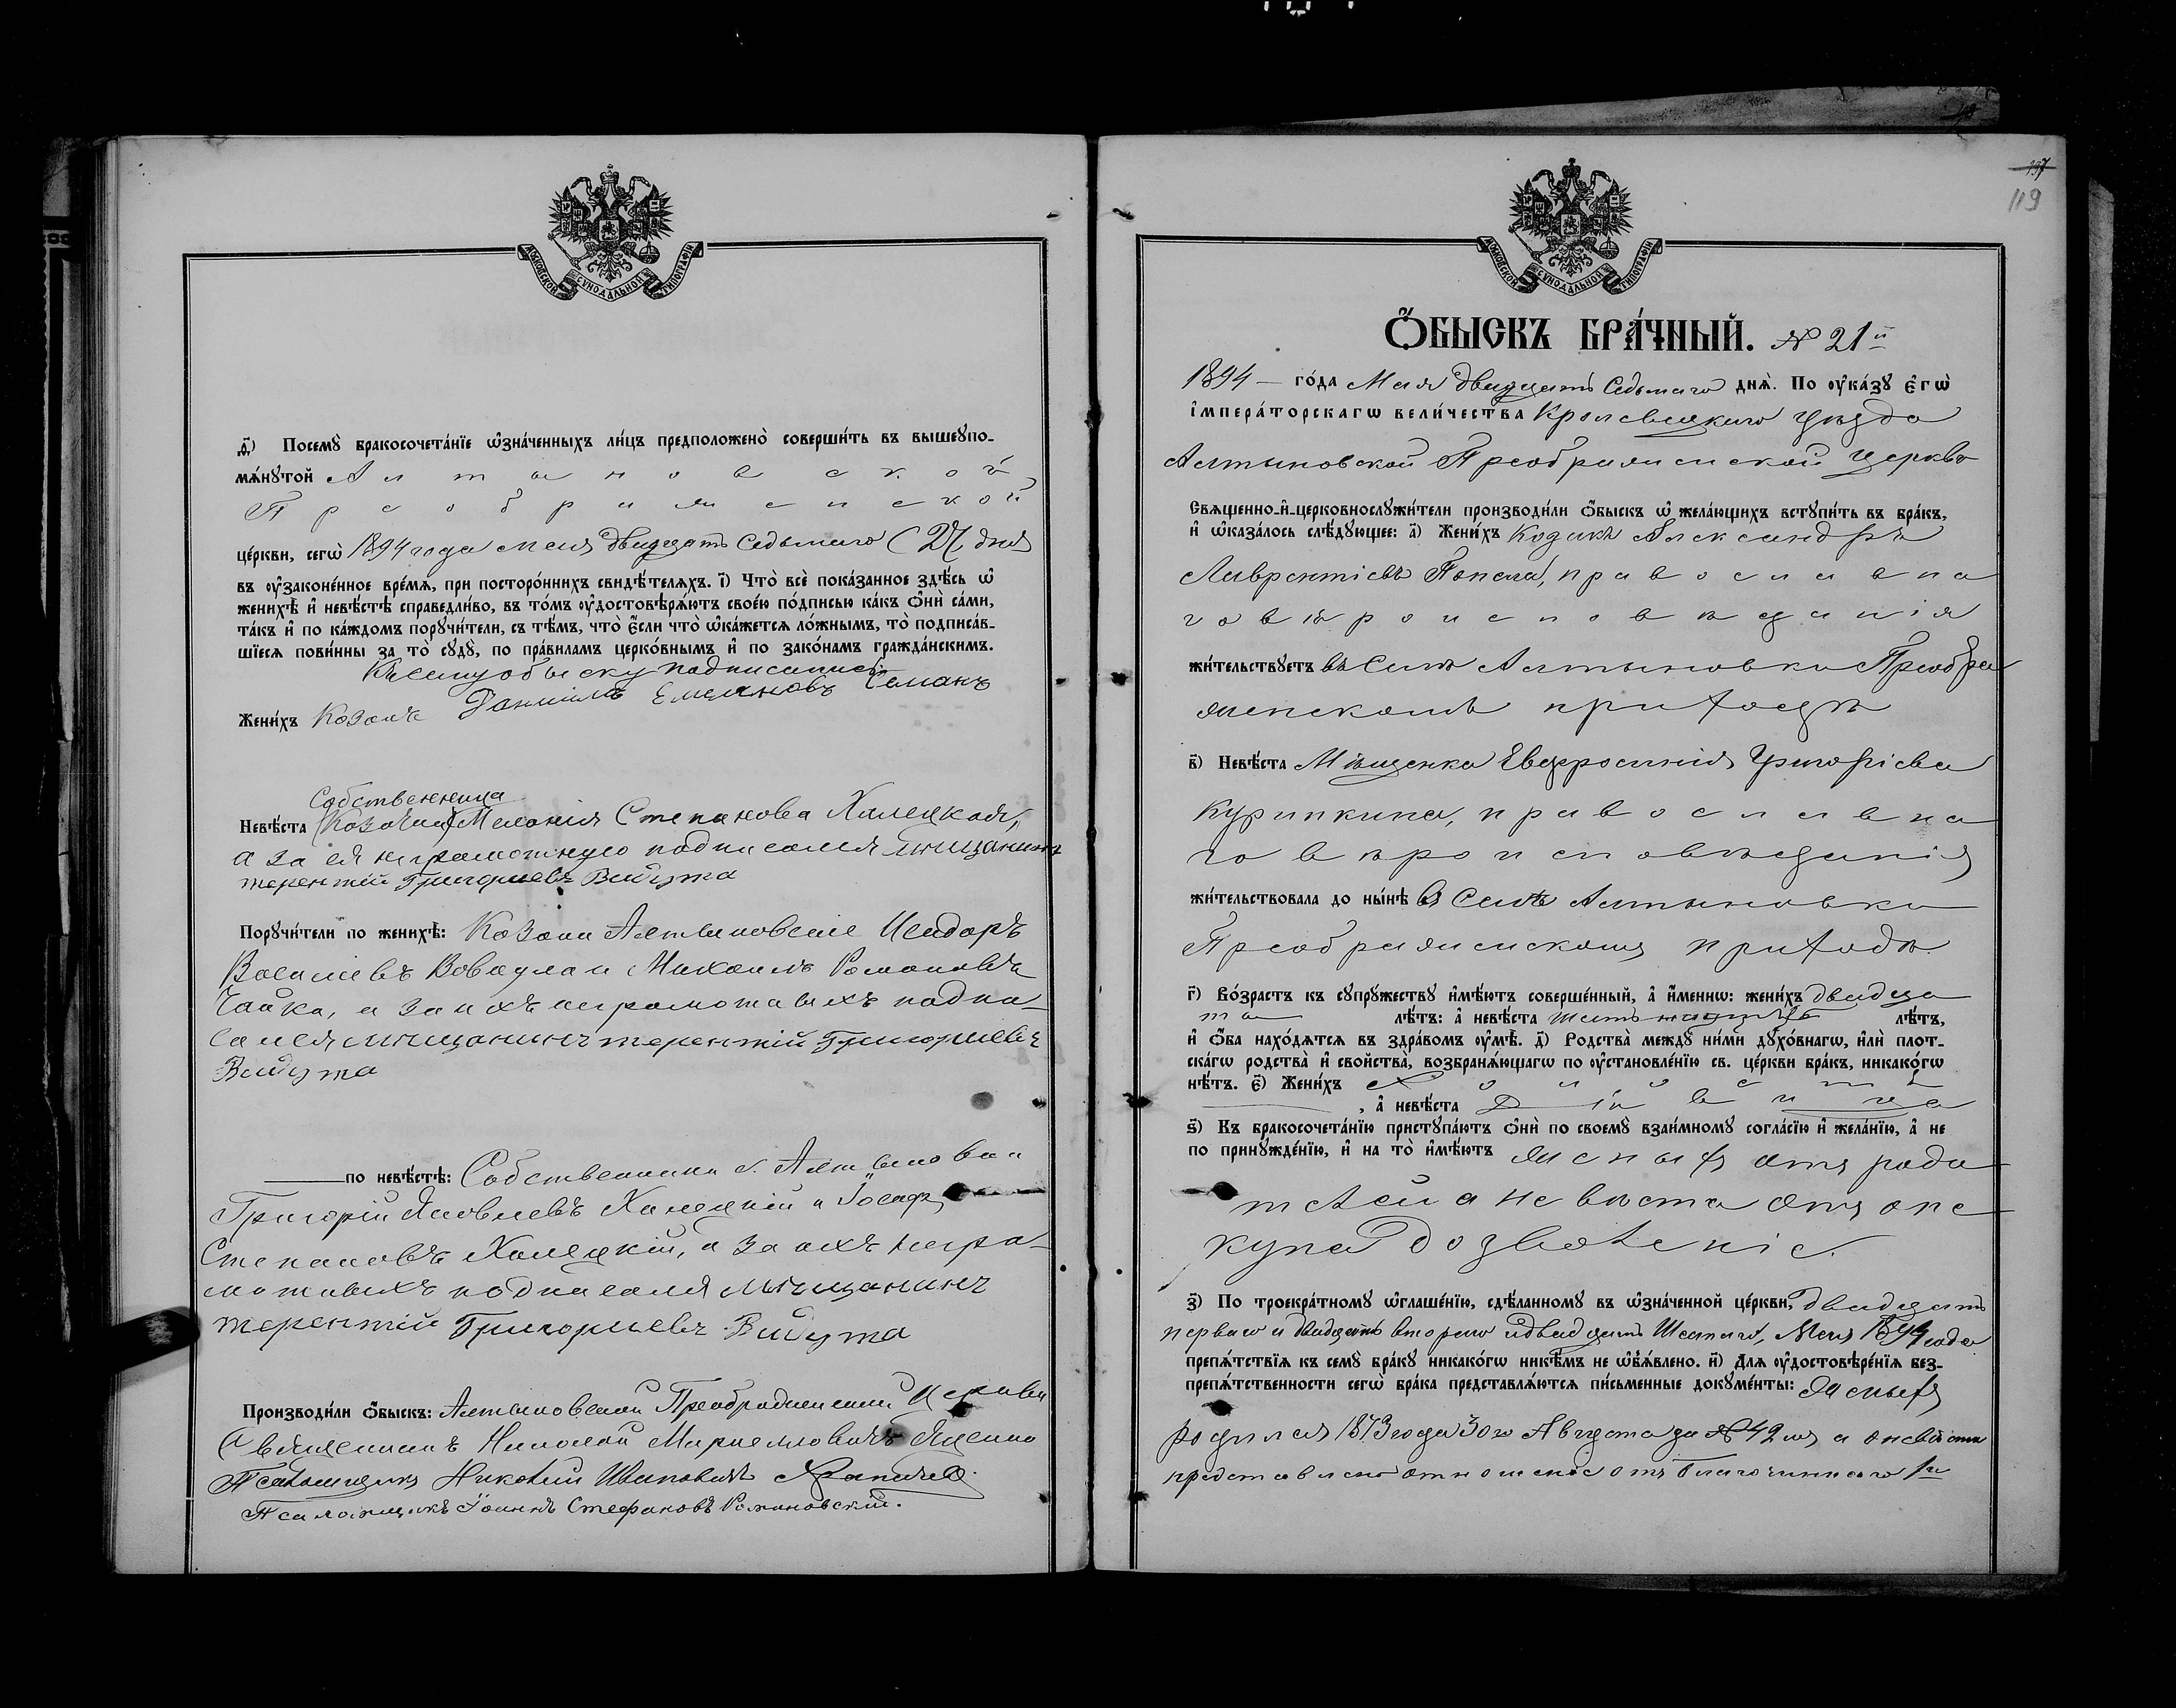 МОСКОВСКОЙ СУНОДАЛЬНОЙ ТИПОГРАФІИ
д҃) Посемꙋ̀ бракосочета́нїе ѡ҆зна́ченныхъ ли́цъ предположено̀ соверши́ть въ вышеꙋпо-
мѧ́нꙋтой Алтыновской
Преображенской
це́ркви, сегѡ̀ 1894 года Мая двадцать седьмаго (27 дня
въ ᲂу҆законе́нное вре́мѧ, при посторо́ннихъ свидѣ́телѧхъ. і҃) Что̀ всѐ пока́занное здѣ́сь ѡ҆
женихѣ̀ и҆ невѣ́стѣ справедли́во, въ то́мъ ᲂу҆достовѣрѧ́ютъ свое́ю по́дписью ка́къ ѻ҆нѝ са́ми,
та́къ и҆ по ка́ждомъ порꙋчи́тели, съ тѣ́мъ, что̀ є҆́сли что̀ ѡ҆ка́жетсѧ ло́жнымъ, то̀ подписа́в-
шїесѧ пови́нны за то̀ сꙋдꙋ̀, по пра́виламъ церко́внымъ и҆ по зако́намъ гражда́нскимъ.
Къ сему обыску подписались
Жени́хъ Козакъ Даниилъ Емелиановъ Семакъ
Собственница
Невѣ́ста (Козачка) Меланія Степанова Халецкая,
а за ея неграмотную подписался мѣщанинъ
терентій Григориевъ Видута
Порꙋчи́тели по женихѣ̀: Козаки Алтыновскіе Исидоръ
Василіевъ и Михаилъ Романовъ
Чайка, а за ихъ неграмотныхъ подпи-
сался мѣщанинъ терентій Григориевъ
Видута
по невѣ́стѣ: Собственники с. Алтыновки
Григорій Яковлевъ Халецкій и Іосифъ
Степановъ Халецкій, а за ихъ негра-
мотныхъ подписался мѣщанинъ
терентій Григорьевъ Видута
Производи́ли ѻ҆́быскъ: Алтыновской Преображенской Церкви
Священникъ Николай Ященко
Псаломщикъ Николай Ивановичъ
Псаломщикъ Іоаннъ Стефановъ Романовскій.
137
119
МОСКОВСКОЙ СУНОДАЛЬНОЙ ТИПОГРАФІИ
Ѻ҆́БЫСКЪ БРА́ЧНЫЙ. № 21й
1894 — го́да Мая двадцать седьмаго днѧ̀. По ᲂу҆ка́зꙋ є҆гѡ̀
і҆мпера́торскагѡ вели́чества Кролевецкаго уѣзда
Алтыновской Преображенской церкви
Свѧщенно-и҆-церковнослꙋжи́тели производи́ли ѻ҆́быскъ ѡ҆ жела́ющихъ встꙋпи́ть въ бра́къ,
и҆ ѡ҆каза́лось слѣ́дꙋющее: а҃) Жени́хъ Козакъ Александръ
Лаврентіевъ Попела, православна
го вѣроисповѣданія
жи́тельствꙋетъ въ селѣ Алтыновки Преобра
женскомъ приходѣ
в҃) Невѣ́ста Мѣщенка Евфросинія Григоріева
Курипкина, православна
го вѣроисповѣданія
жи́тельствовала до ны́нѣ въ селѣ Алтыновки
Преображенскомъ приходѣ.
г҃) Во́зрастъ къ сꙋпрꙋ́жествꙋ и҆мѣ́ютъ соверше́нный, а҆ и҆́меннѡ: жени́хъ двадца
ти лѣ́тъ: а҆ невѣ́ста шестьнадцать лѣ́тъ,
и҆ ѻ҆́ба нахо́дѧтсѧ въ здра́вомъ ᲂу҆мѣ̀. д҃) Родства̀ междꙋ̀ ни́ми дꙋхо́внагѡ, и҆лѝ плот-
ска́гѡ родства̀ и҆ свойства̀, возбранѧ́ющагѡ по ᲂу҆становле́нїю св. це́ркви бра́къ, никако́гѡ
нѣ́тъ. є҃) Жени́хъ Холостъ
, а҆ невѣ́ста Дѣвица
ѕ҃) Къ бракосочета́нїю пристꙋпа́ютъ ѻ҆нѝ по своемꙋ̀ взаи́мномꙋ согла́сїю и҆ жела́нїю, а҆ не
по принꙋжде́нїю, и҆ на то̀ и҆мѣ́ютъ Женихъ отъ роди
телей а невѣста отъ опе
куна дозволеніе.
з҃) По троекра́тномꙋ ѡ҆глаше́нїю, сдѣ́ланномꙋ въ ѡ҆зна́ченной це́ркви, двадцать
перваго и двадцать втораго и двадцать шестаго, Мая 1894 года
препѧ́тствїѧ къ семꙋ̀ бра́кꙋ никако́гѡ никѣ́мъ не ѡ҆б̾ѧ́влено. и҃) Длѧ ᲂу҆достовѣре́нїѧ без-
препѧ́тственности сегѡ̀ бра́ка представлѧ́ютсѧ пи́сьменные докꙋме́нты: Женихъ
родился 1873 года 30го Августа за № 42мъ а о невѣстѣ
представлено отношеніе отъ Благочиннаго 1го